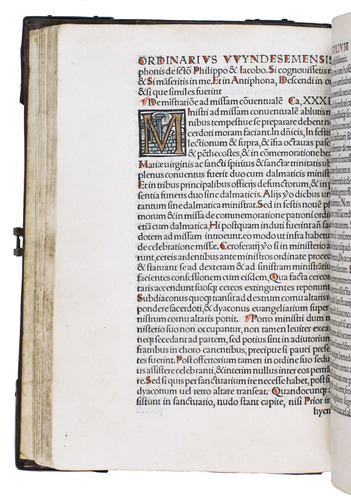 ORDINARIVS VVYNDESEMENSIS
phonis de sctõ Philippo & Iacobo. Si cognouissetis m
& Si mãseritis in me. Et in Antiphona, Descendi in or
& si que similes fuerint
¶ De mĩstratiõe ad missam cõuentualẽ Ca, XXXI
Ministri ad missam conuentualem ablutis m
nibus competiue se preparare debent ne
cerdoti moram faciant. In dñicis, In festis
lectionum & supra, & ifra octauas pasc
& pẽthecostes, & in cõmemoratione be
Mariæ uirginis ac sancti spiritus & sanctæ trinitatis ub
plenus conuentus fuerit duo cum dalmaticis ministre
Et in tribus principalibus officijs defunctorũ, & in p
sentia funeris duo sine dalmaticis. Alijs ỹo diebus un
tantum sine dalmatica ministrat. Sed in festis nouẽ
orum & in missa de commemoratione patroni ordin
etiã cum dalmatica, Hi postquam induti fuerint an sa
dotem ad missam introeunt. eo modo ut infra habetur
de celebratione missæ. Ceroferarij ỹo si in ministerio
runt, cereis ardentibus ante ministros ordinate proced
& statuunt se ad dexteram & ad sinistram ministrorũ
facientes confessionem cum eisdem, Qua facta cerofe
rarij accendunt suos usq̃ cereos extinguentes reponunt
Subdiaconus quoq̃ transit ad dextrum cornu altaris re
pondere sacerdoti, & dyaconus euangeliarium super
nistrum cornu altaris ponit. ¶ Porro ministri dum m
nisterio suo non occupantur, non tamen leuiter exced
debent ad partem, sed potius sint in adiutoriũ
fratribus in choro canentibus, precipue si pauci prese
tes fuerint. Post offertorium tamen in ordine suo sedu
tis assistere celebranti, & interim nullus intret uel exea
tis. Sed si quis per sanctuarium ire necesse habet, post
dyaconum uel retro altare transeat. Quandocunq̃
sistunt in sanctuario, nudo stant capite, nisi Prior in
hyem